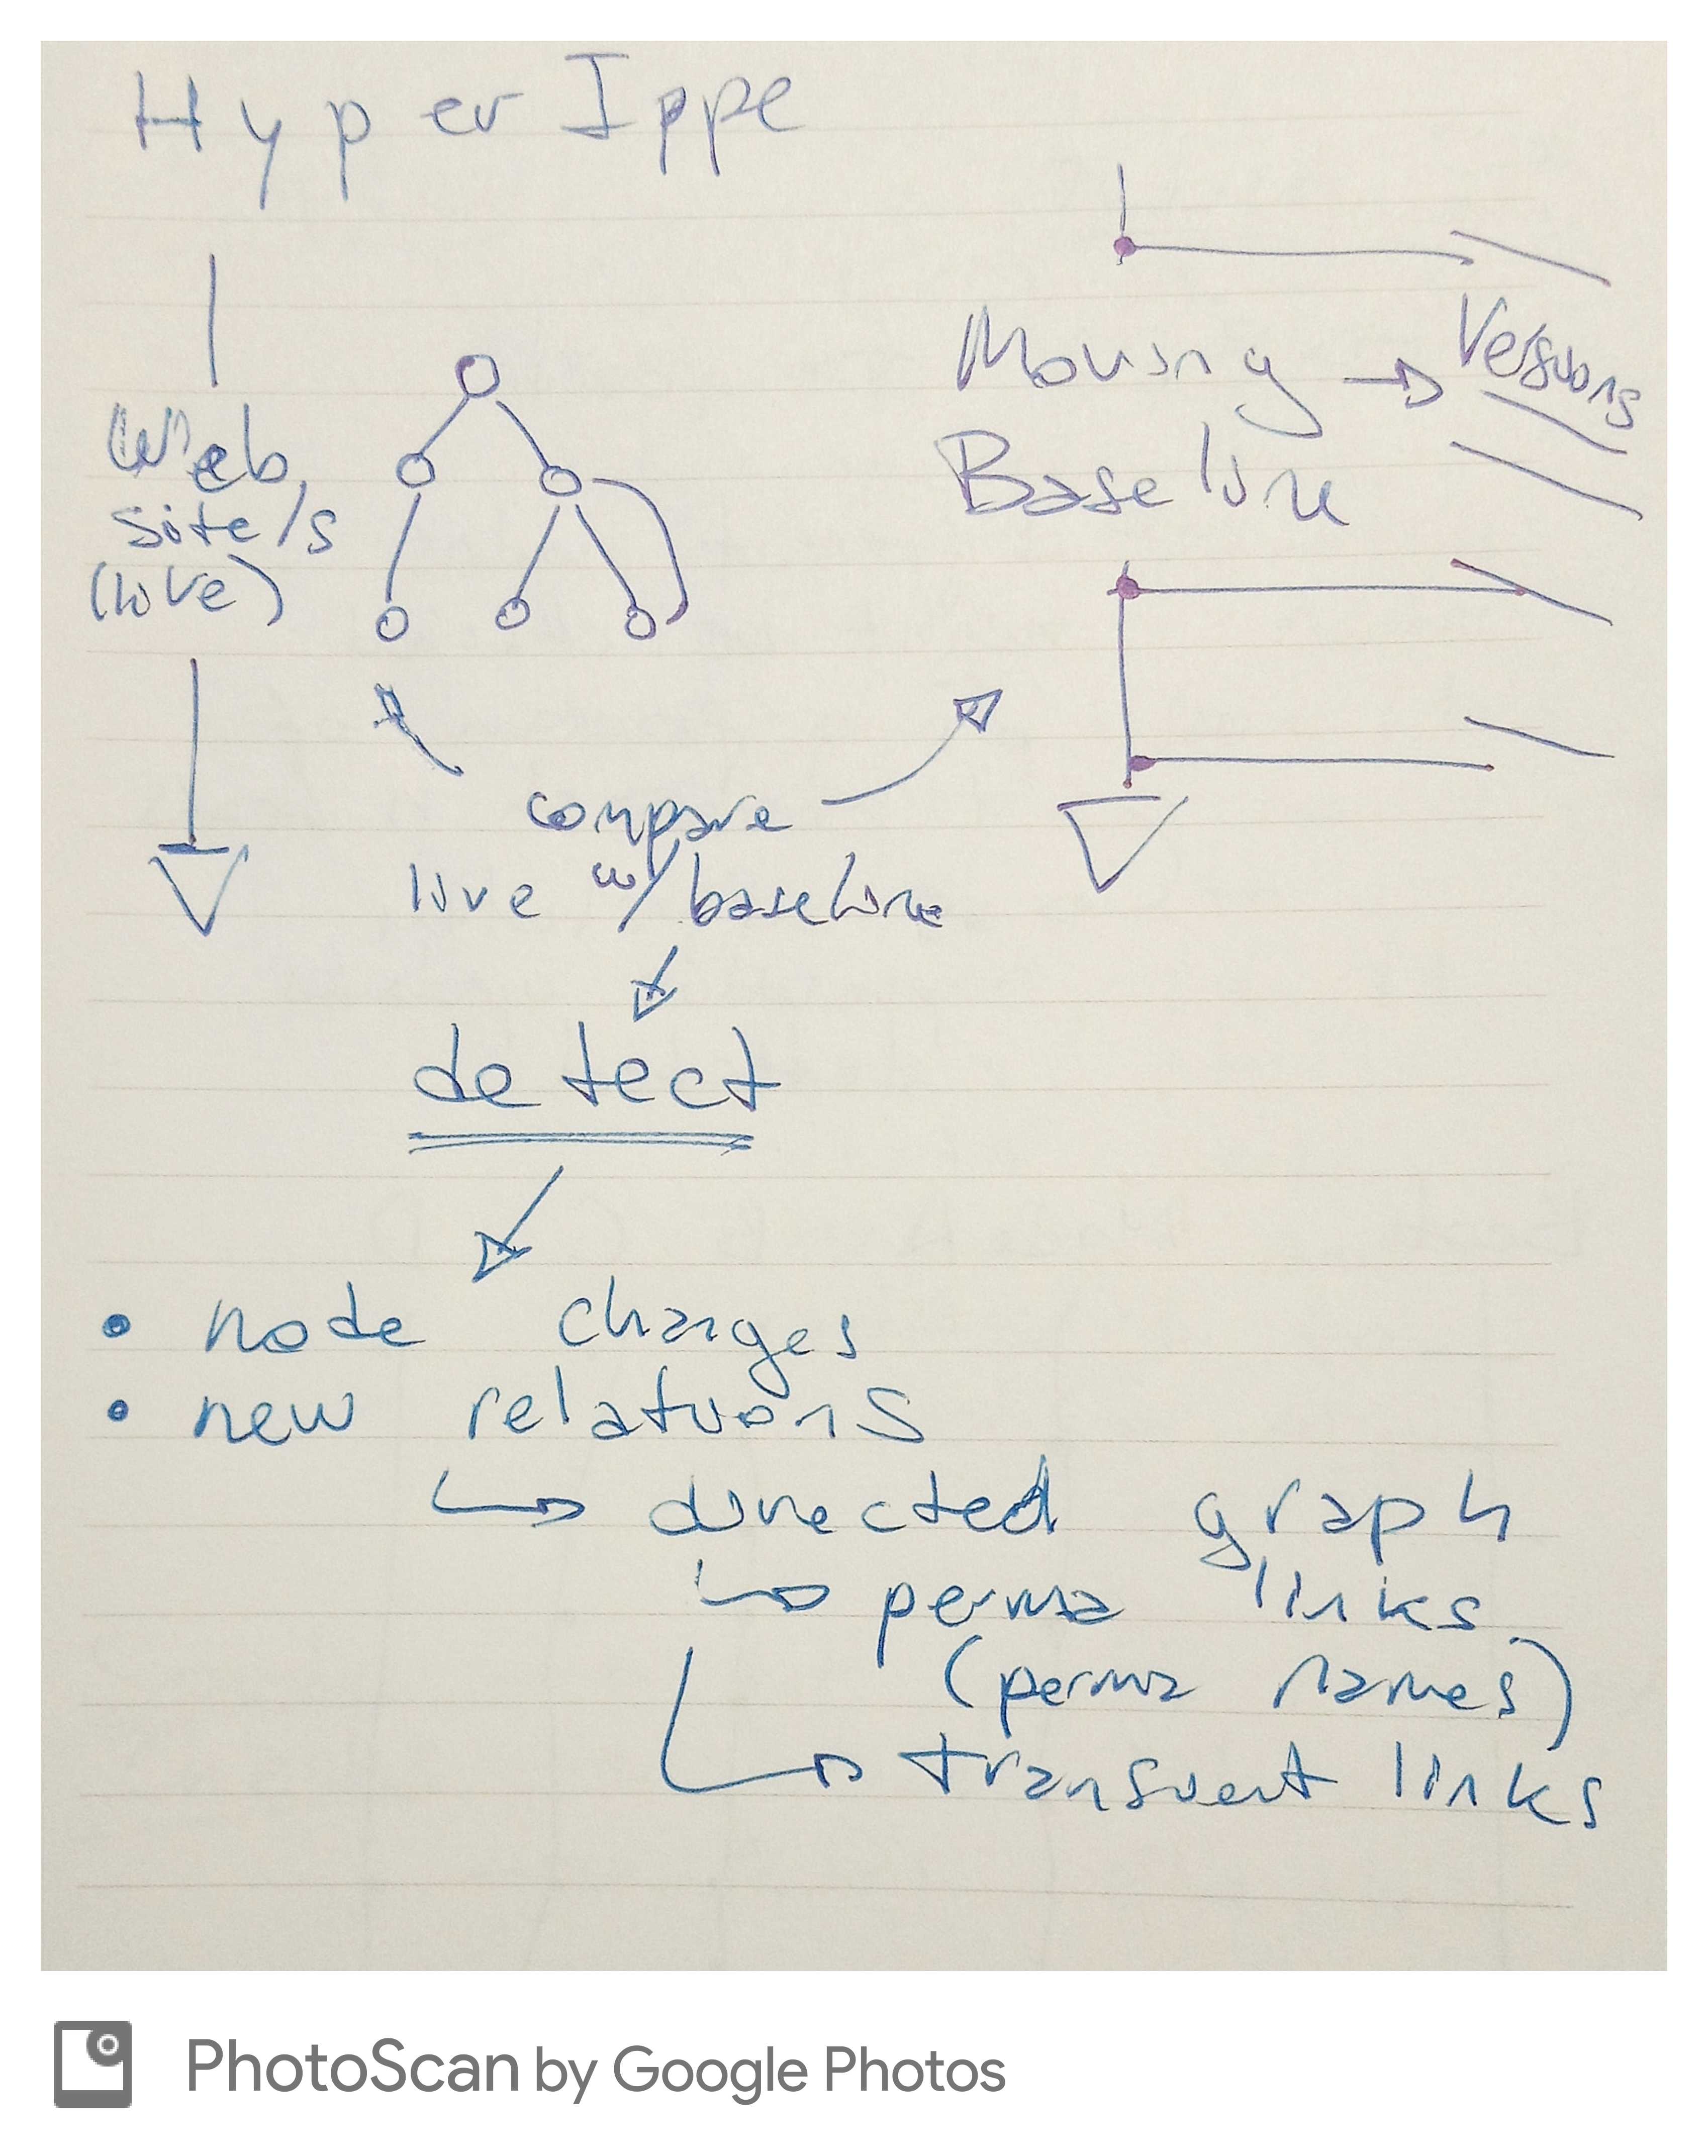 Hyper Ippe
Web
site/s
(live)
Moving → Versions
Baseline
compare
live w/ baseline
detect
• node changes
• new relations
↳ directed graph
↳ perma links
(perma names)
↳ transient links
PhotoScan by Google Photos